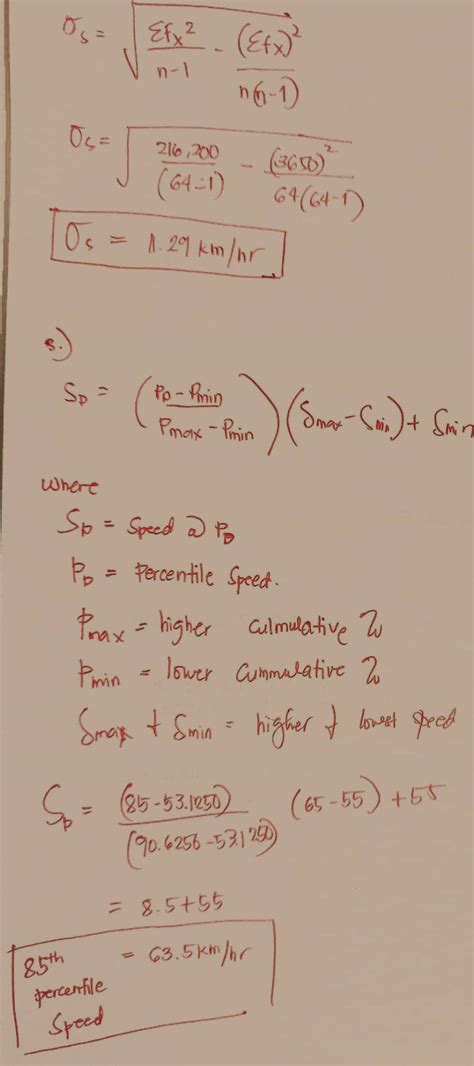 σs = √( Σfx²/(n-1) - (Σfx)²/(n(n-1)) )
σs = √( 216,200/(64-1) - (3650)²/(64(64-1)) )
σs = 1.29 km/hr
s.)
Sp = ( (Pp - Pmin)/(Pmax - Pmin) ) (Smax - Smin) + Smin
where
Sp = Speed @ PD
PD = Percentile Speed.
Pmax = higher culmulative %
Pmin = lower cummulative %
Smax & Smin = higher & lowest speed
Sp = (85-53.1250)/(90.6256-53.1250) (65-55) + 55
= 8.5+55
85th percentile Speed = 63.5 km/hr